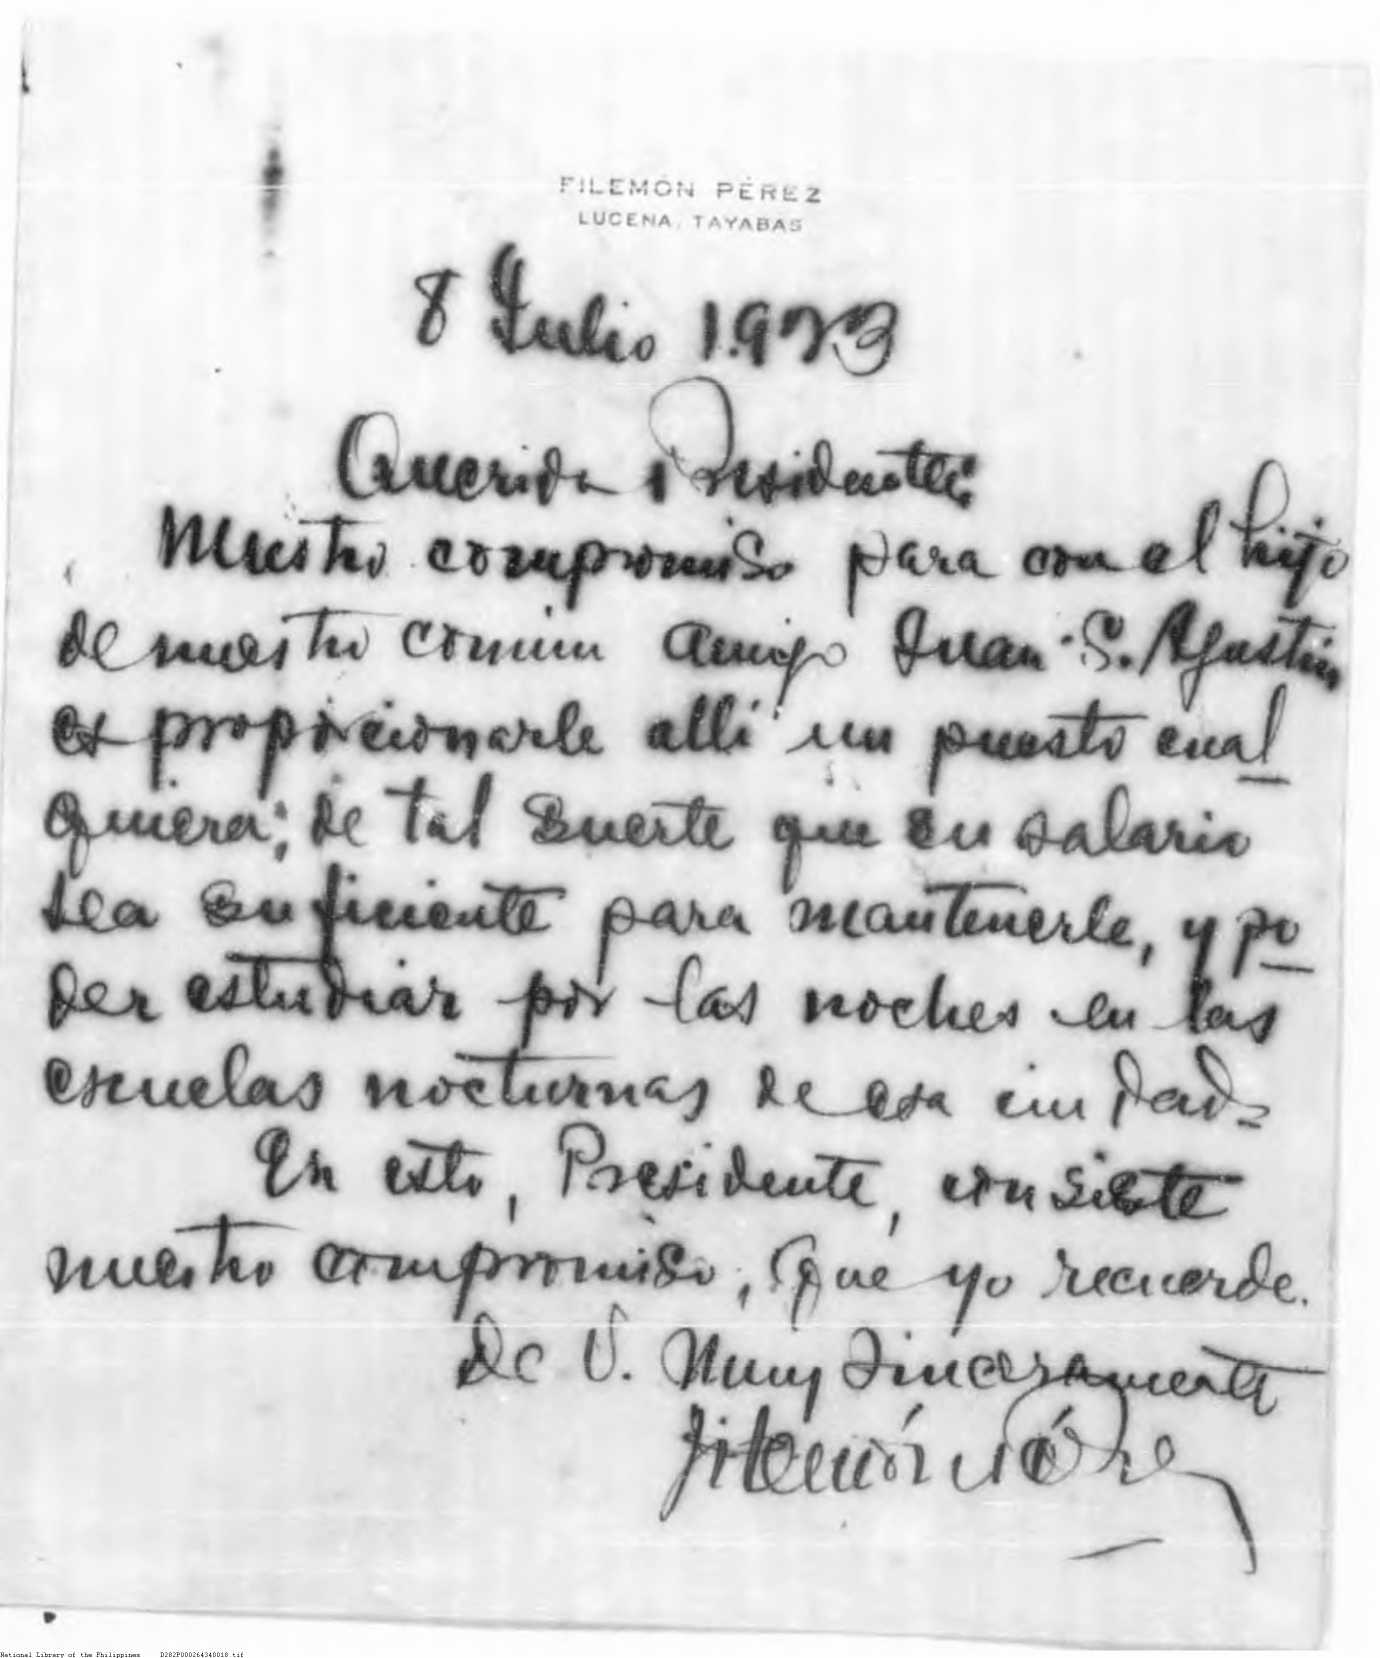 FILEMÓN PÉREZ
LUCENA, TAYABAS
8 Julio 1.923
Querido Presidente:
Nuestro compromiso para con el hijo
de nuestro común amigo Juan S. Agustin
es proporcionarle allí un puesto cual
quiera; de tal suerte que su salario
sea suficiente para mantenerle, y po
der estudiar por las noches en las
escuelas nocturnas de esa ciudad-
En esto, Presidente, consiste
nuestro compromiso, que yo recuerde.
De V. Muy Sinceramente
Filemón Pérez
National Library of the Philippines D282P000264340018.tif